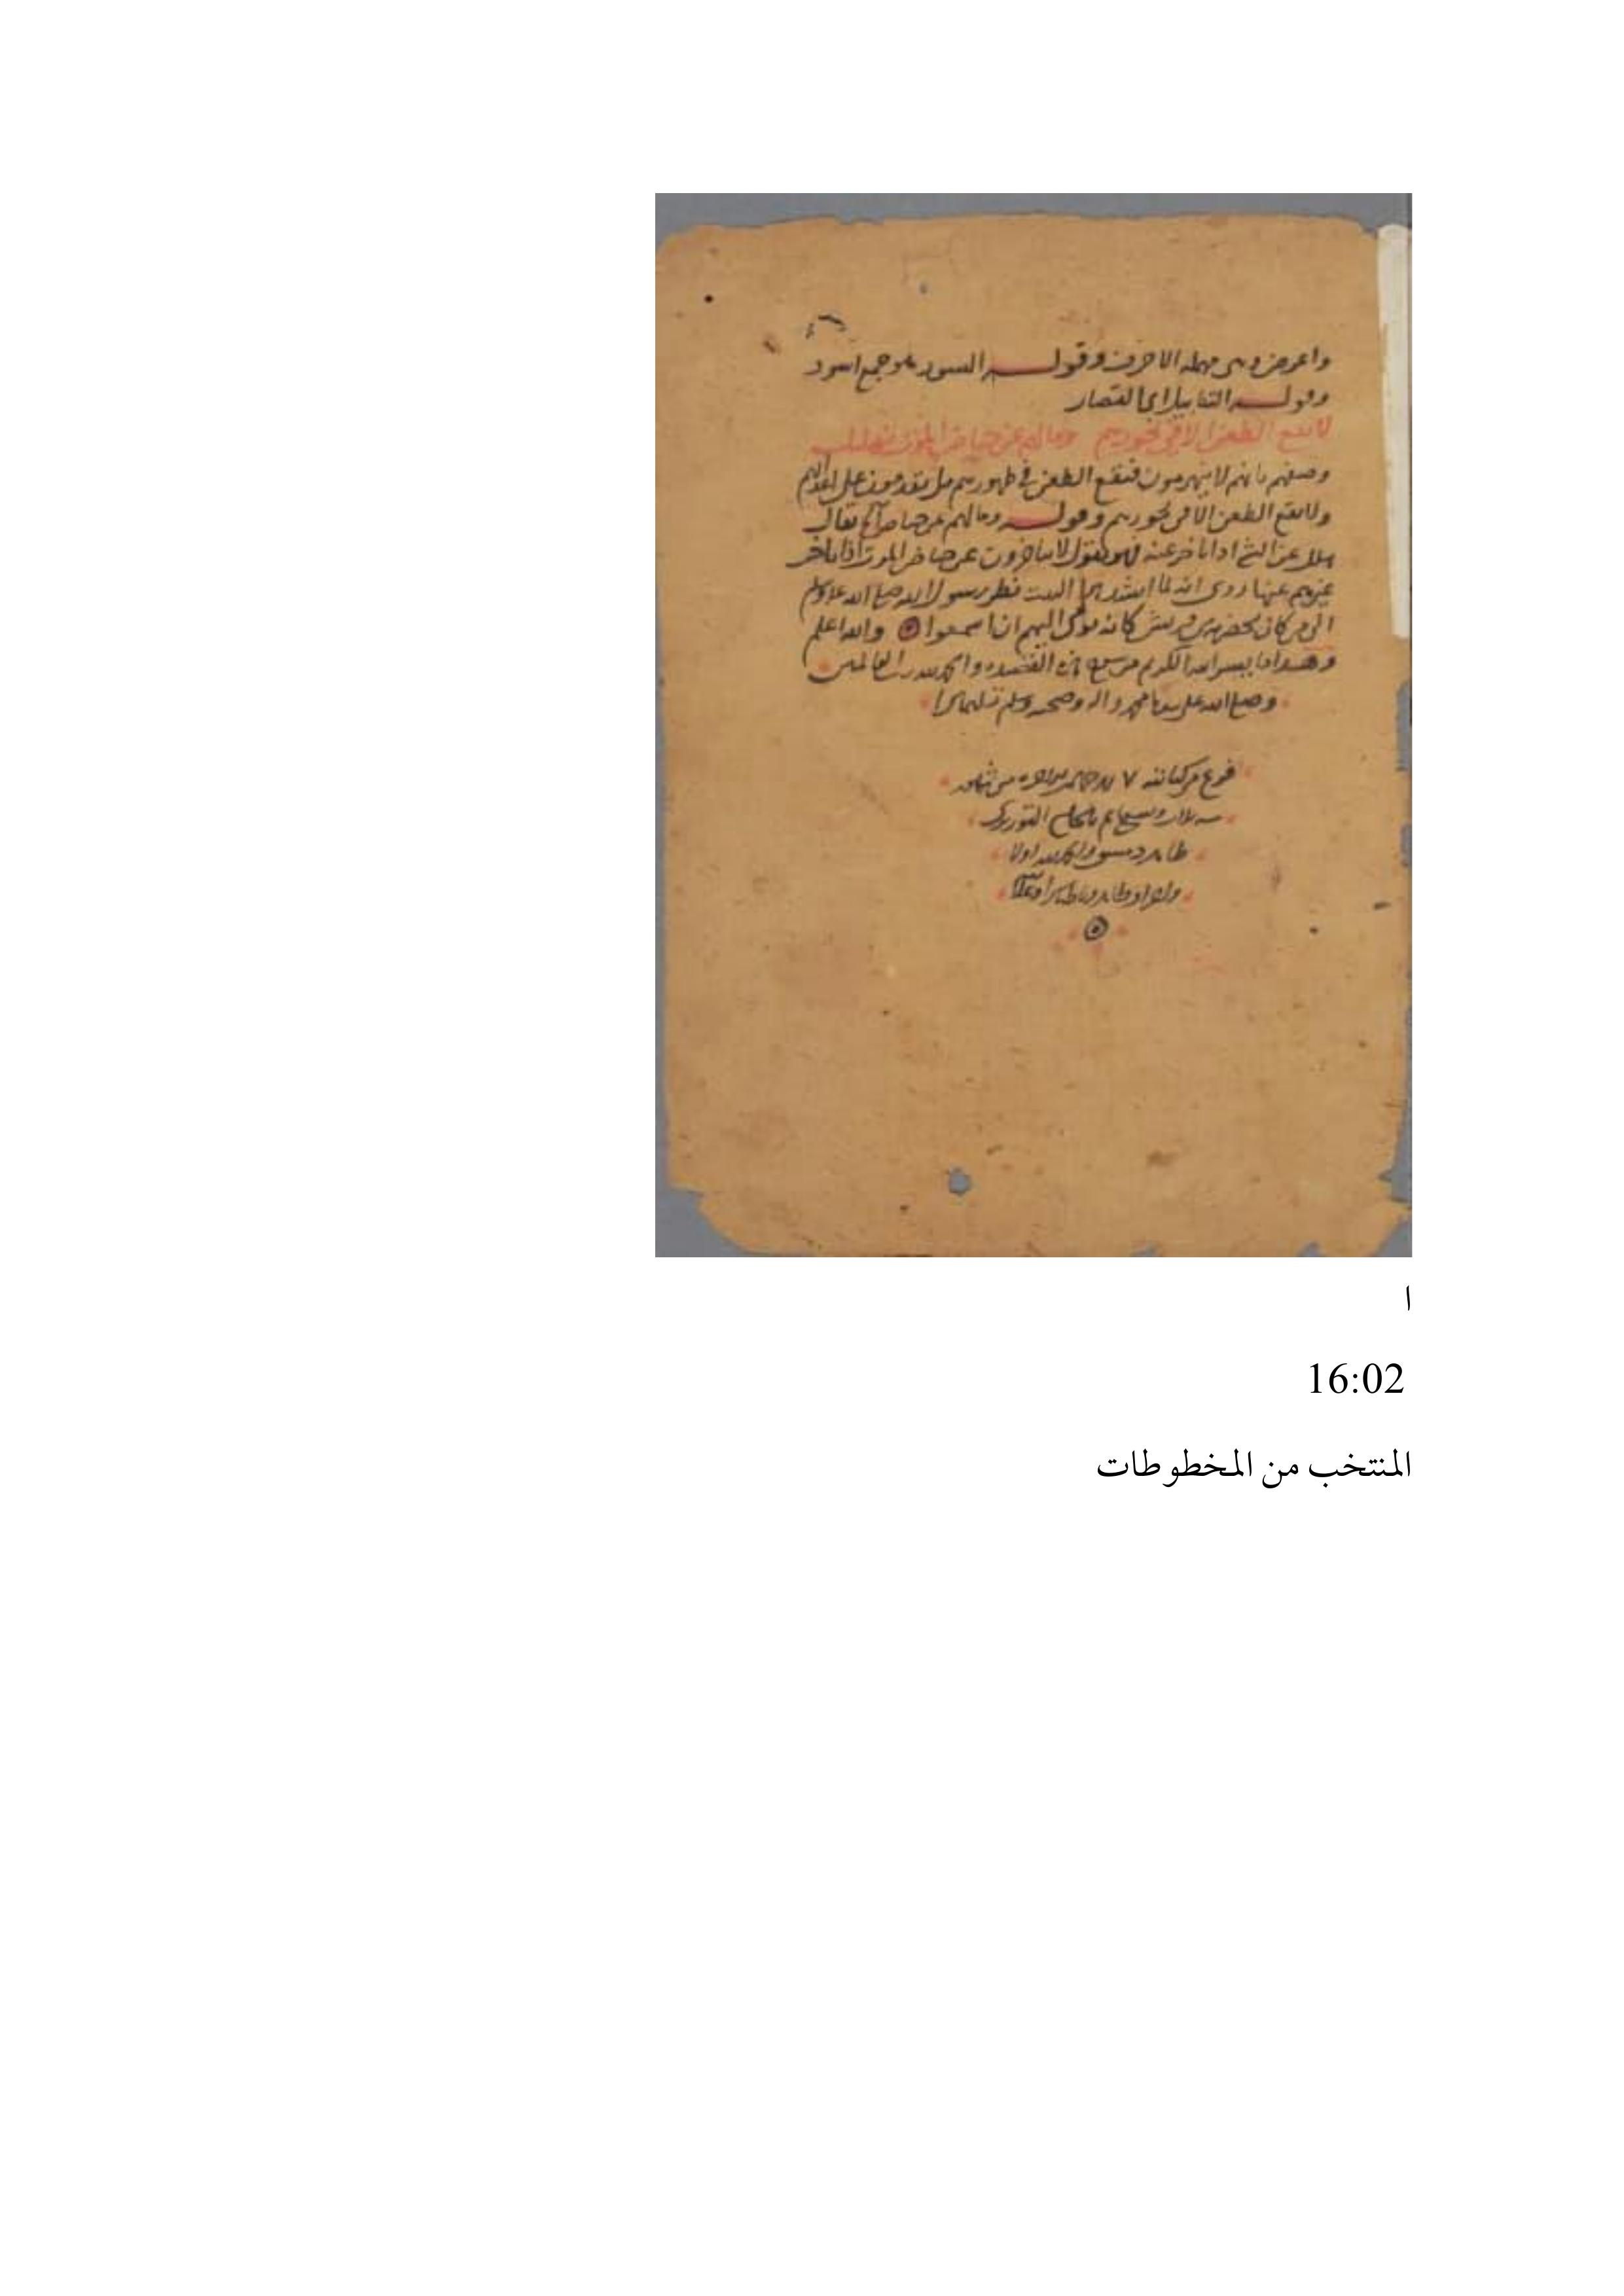 واعرض وهى مهملة الاحرف وقوله السود هو جمع اسود
وقوله التنابيل اى القصار
لايقع الطعن الا في نحورهم وما لهم عن حياض الموت تهليل
وصفهم بانهم لا ينهزمون فيقع الطعن في ظهورهم بل يقدمون على اعدائهم
ولا يقع الطعن الا في نحورهم وقوله وما لهم عن حياض الخ يقال
هلل عن الشئ اذا تاخر عنه فهو يقول لا يتاخرون عن حياض الموت اذا تاخر
غيرهم عنها روى انه لما انشد هذا البيت نظر رسول الله صلى الله عليه وسلم
الى من كان بحضرته من قريش كانه يومى اليهم ان اسمعوا والله اعلم
وهذا ما يسر الله الكريم من شرح هذه القصيدة والحمد لله رب العالمين
وصلى الله على سيدنا محمد واله وصحبه وسلم تسليما كثيرا
فرغ من كتابته ٧
ظاهر دمشق والحمد لله اولا
واخرا وظاهرا وباطنا
ا
16:02
المنتخب من المخطوطات